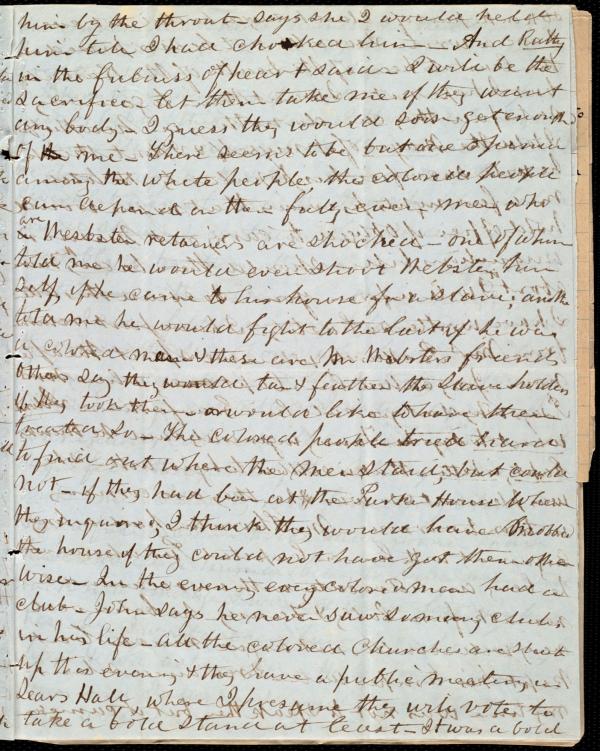 him by the throat - says she I would held
him till I had choked him - And Ruthy
in the fullness of heart said - I will be the
sacrifice - let them take me if they want
any body - I guess they would soon get enough
of me - There seems to be but one opinion
among the white people, the colored people
can depend on them fully, even men who
are Webster retainers are shocked - one of whom
told me he would even shoot Webster him
self, if he came to his house for a slave; and he
told me he would fight to the last if he was
a colored man & these are Mr Websters friends
others say they would tar & feather the slave holders
if they took them - or would like to have them
treated so - The colored people tried hard
to find out where the men staid, but could
not - if they had been at the Parker House where
they inquired, I think they would have mobbed
the house if they could not have got them other
wise - In the evening every colored man had a
club - John says he never saw so many clubs
in his life - all the colored Churches are shut
up this evening & they have a public meeting in
Sears Hall, where I presume they will vote to
take a bold stand at least - It was a bold